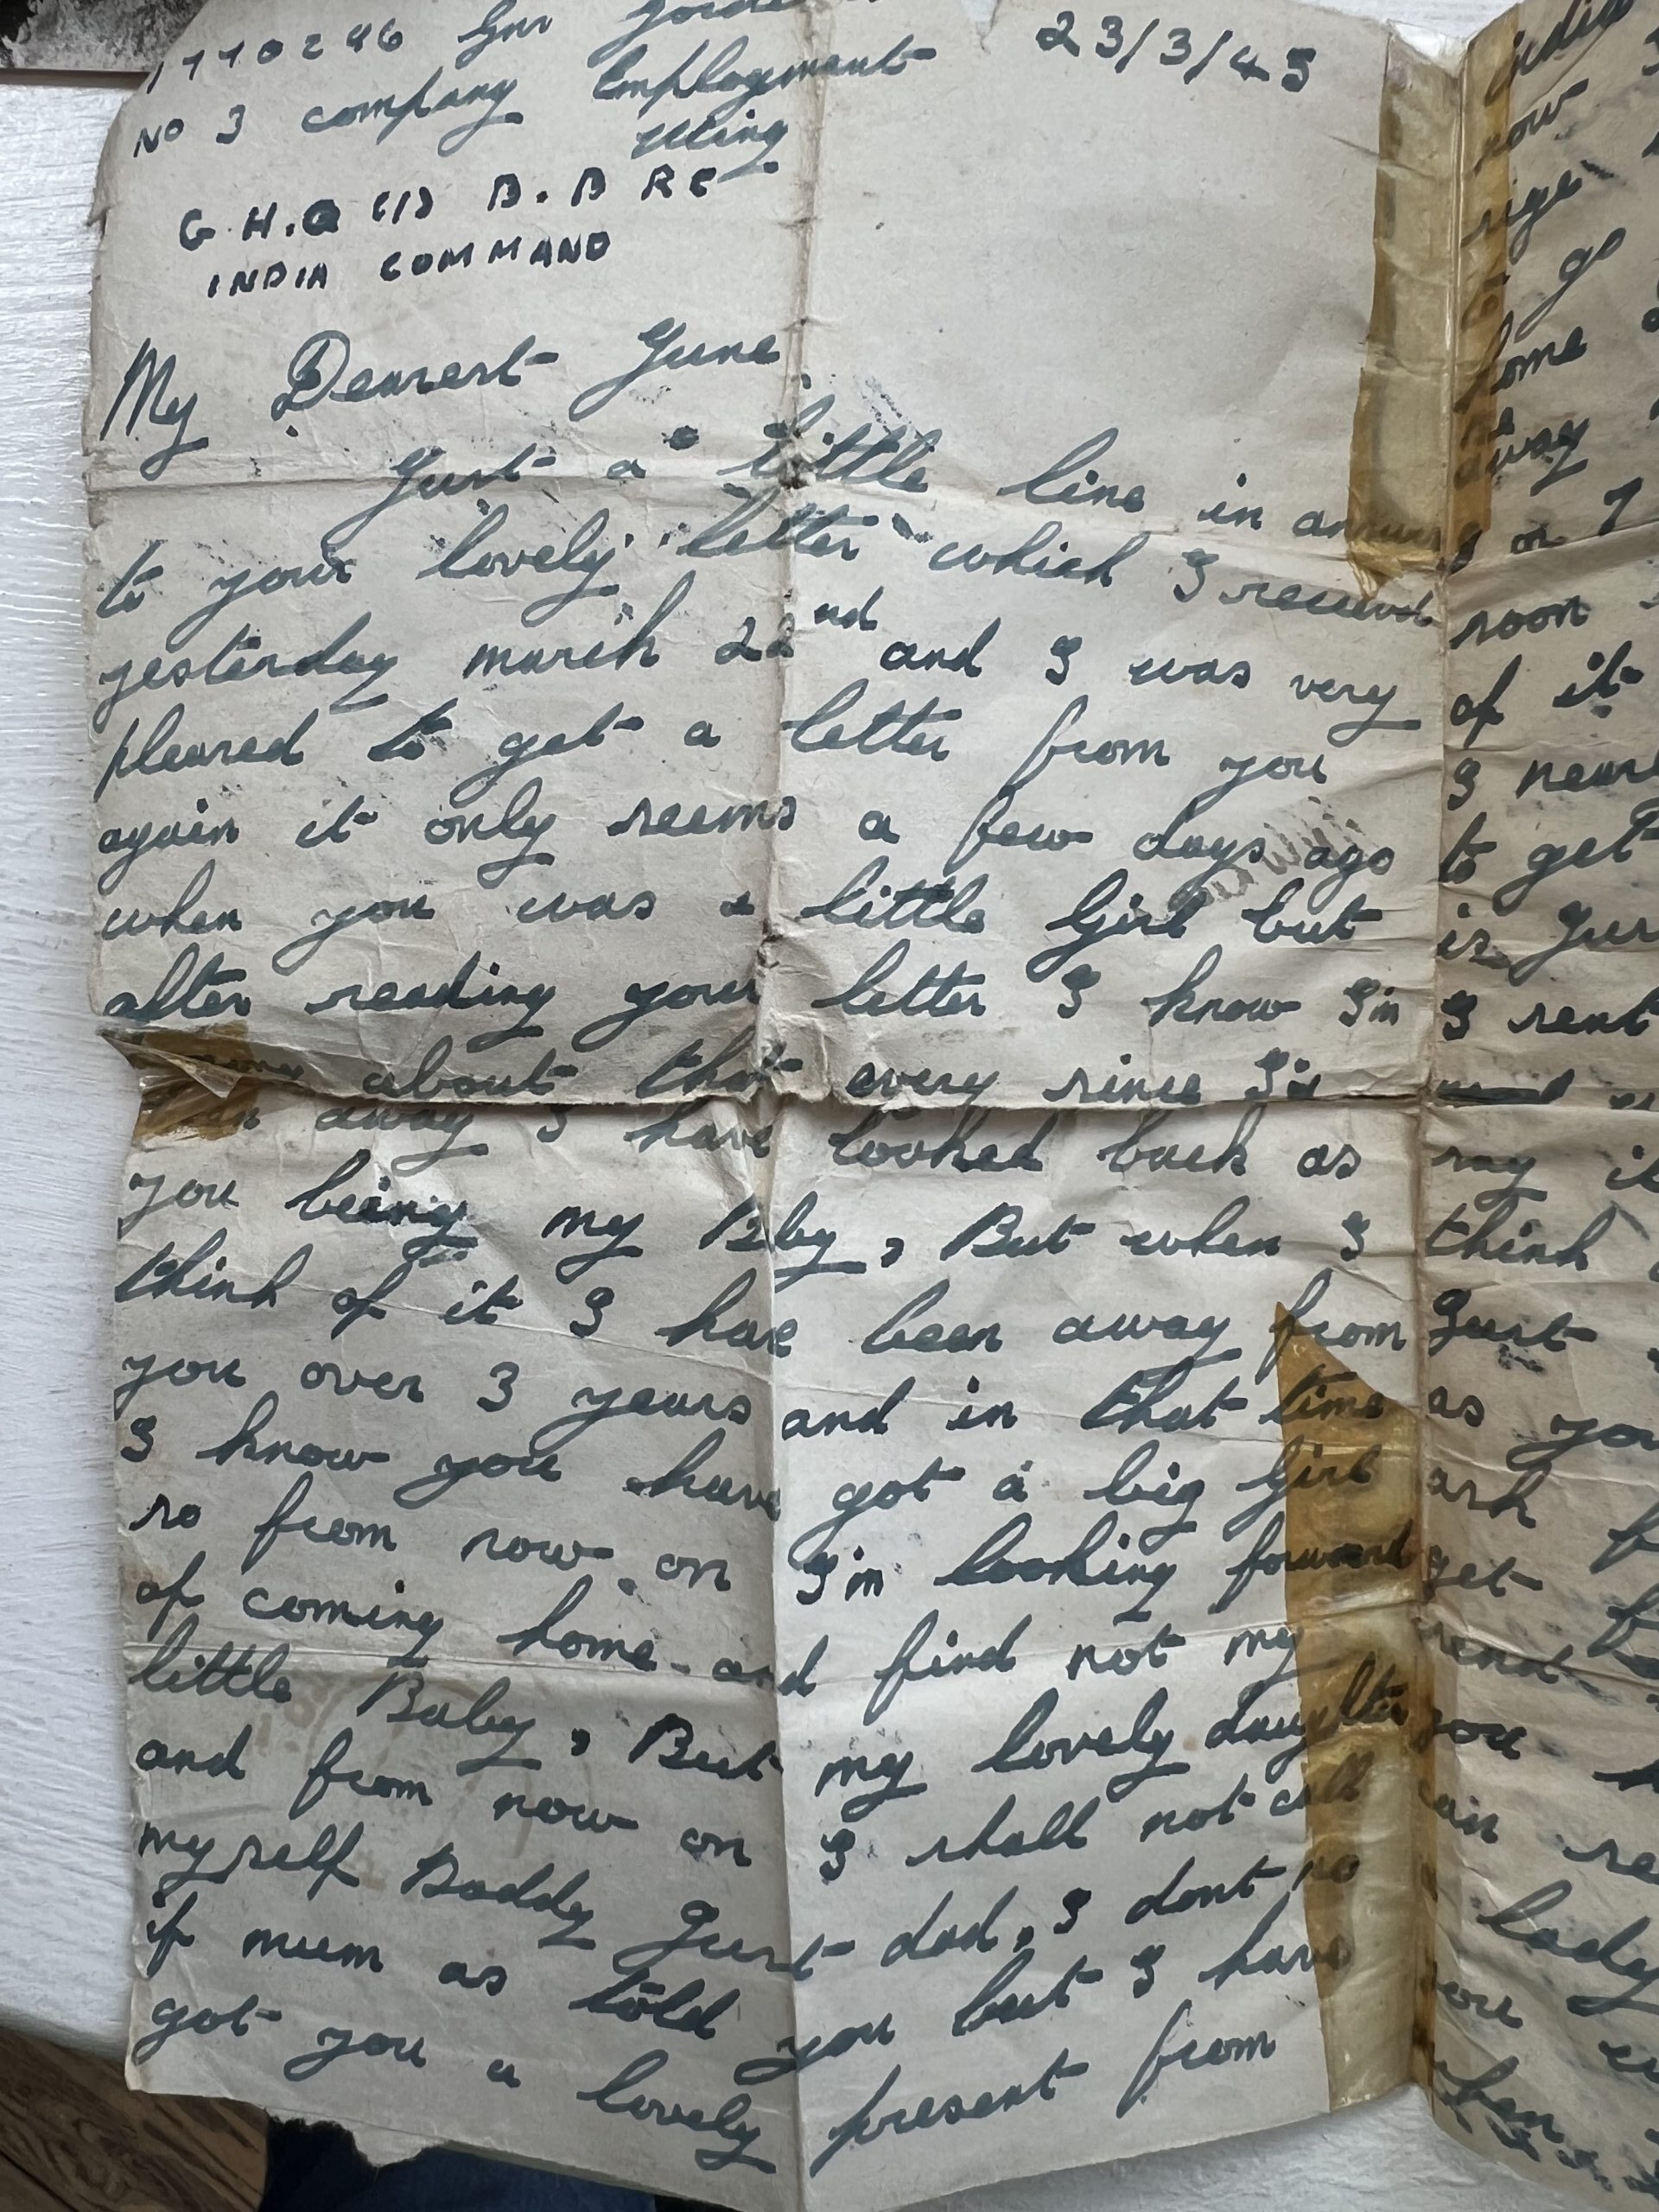 1770296 Gnr
23/3/45
No 3 company Employment
Wing
G.H.Q (1) B. B RE
INDIA COMMAND
My Dearest June
Just a little line in answer
to your lovely letter which I received
yesterday march 22nd and I was very
pleased to get a letter from you
again it only seems a few days ago
when you was a little Girl but
after reading your letter I know Im
about that every since Iv
away I have looked back as
you being my Bby, But when I
think of it I have been away from
you over 3 years and in that time
I know you have got a big Girl
so from now on Im looking forward
of coming home and find not my
little Baby, But my lovely daughter
and from now on I shall not call
myself Daddy Just dad, I dont no
if mum as told you but I have
got you a lovely present from
India
now
go
home
away
or
soon
of it
I
to get
is
I sent
say
think
Just
as
ask
get
send
you
can
lady
you
when